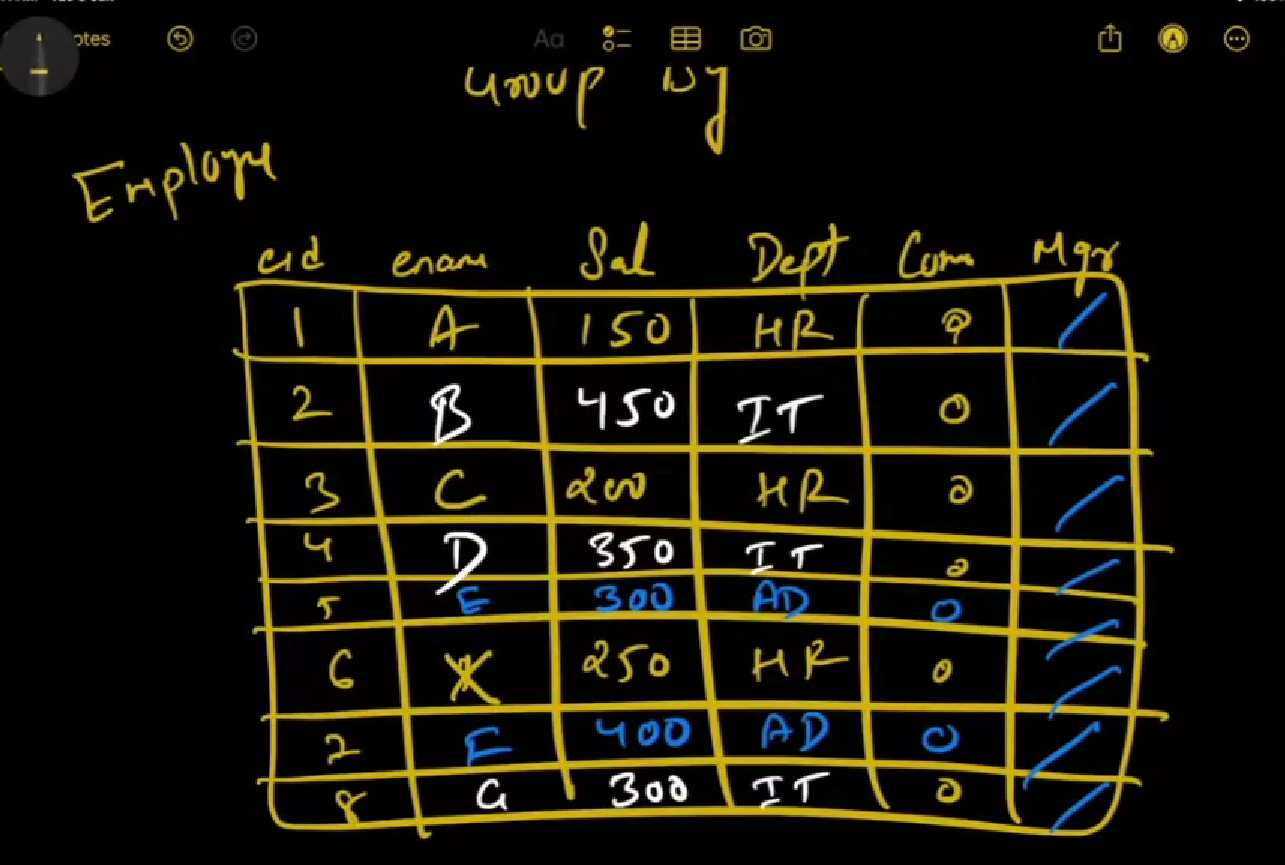 otes
Aa
Group By
Employe
eid ename Sal Dept Com Mgr
1 A 150 HR 0
2 B 450 IT 0
3 C 200 HR 0
4 D 350 IT 0
5 E 300 AD 0
6 X 250 HR 0
7 F 400 AD 0
8 G 300 IT 0